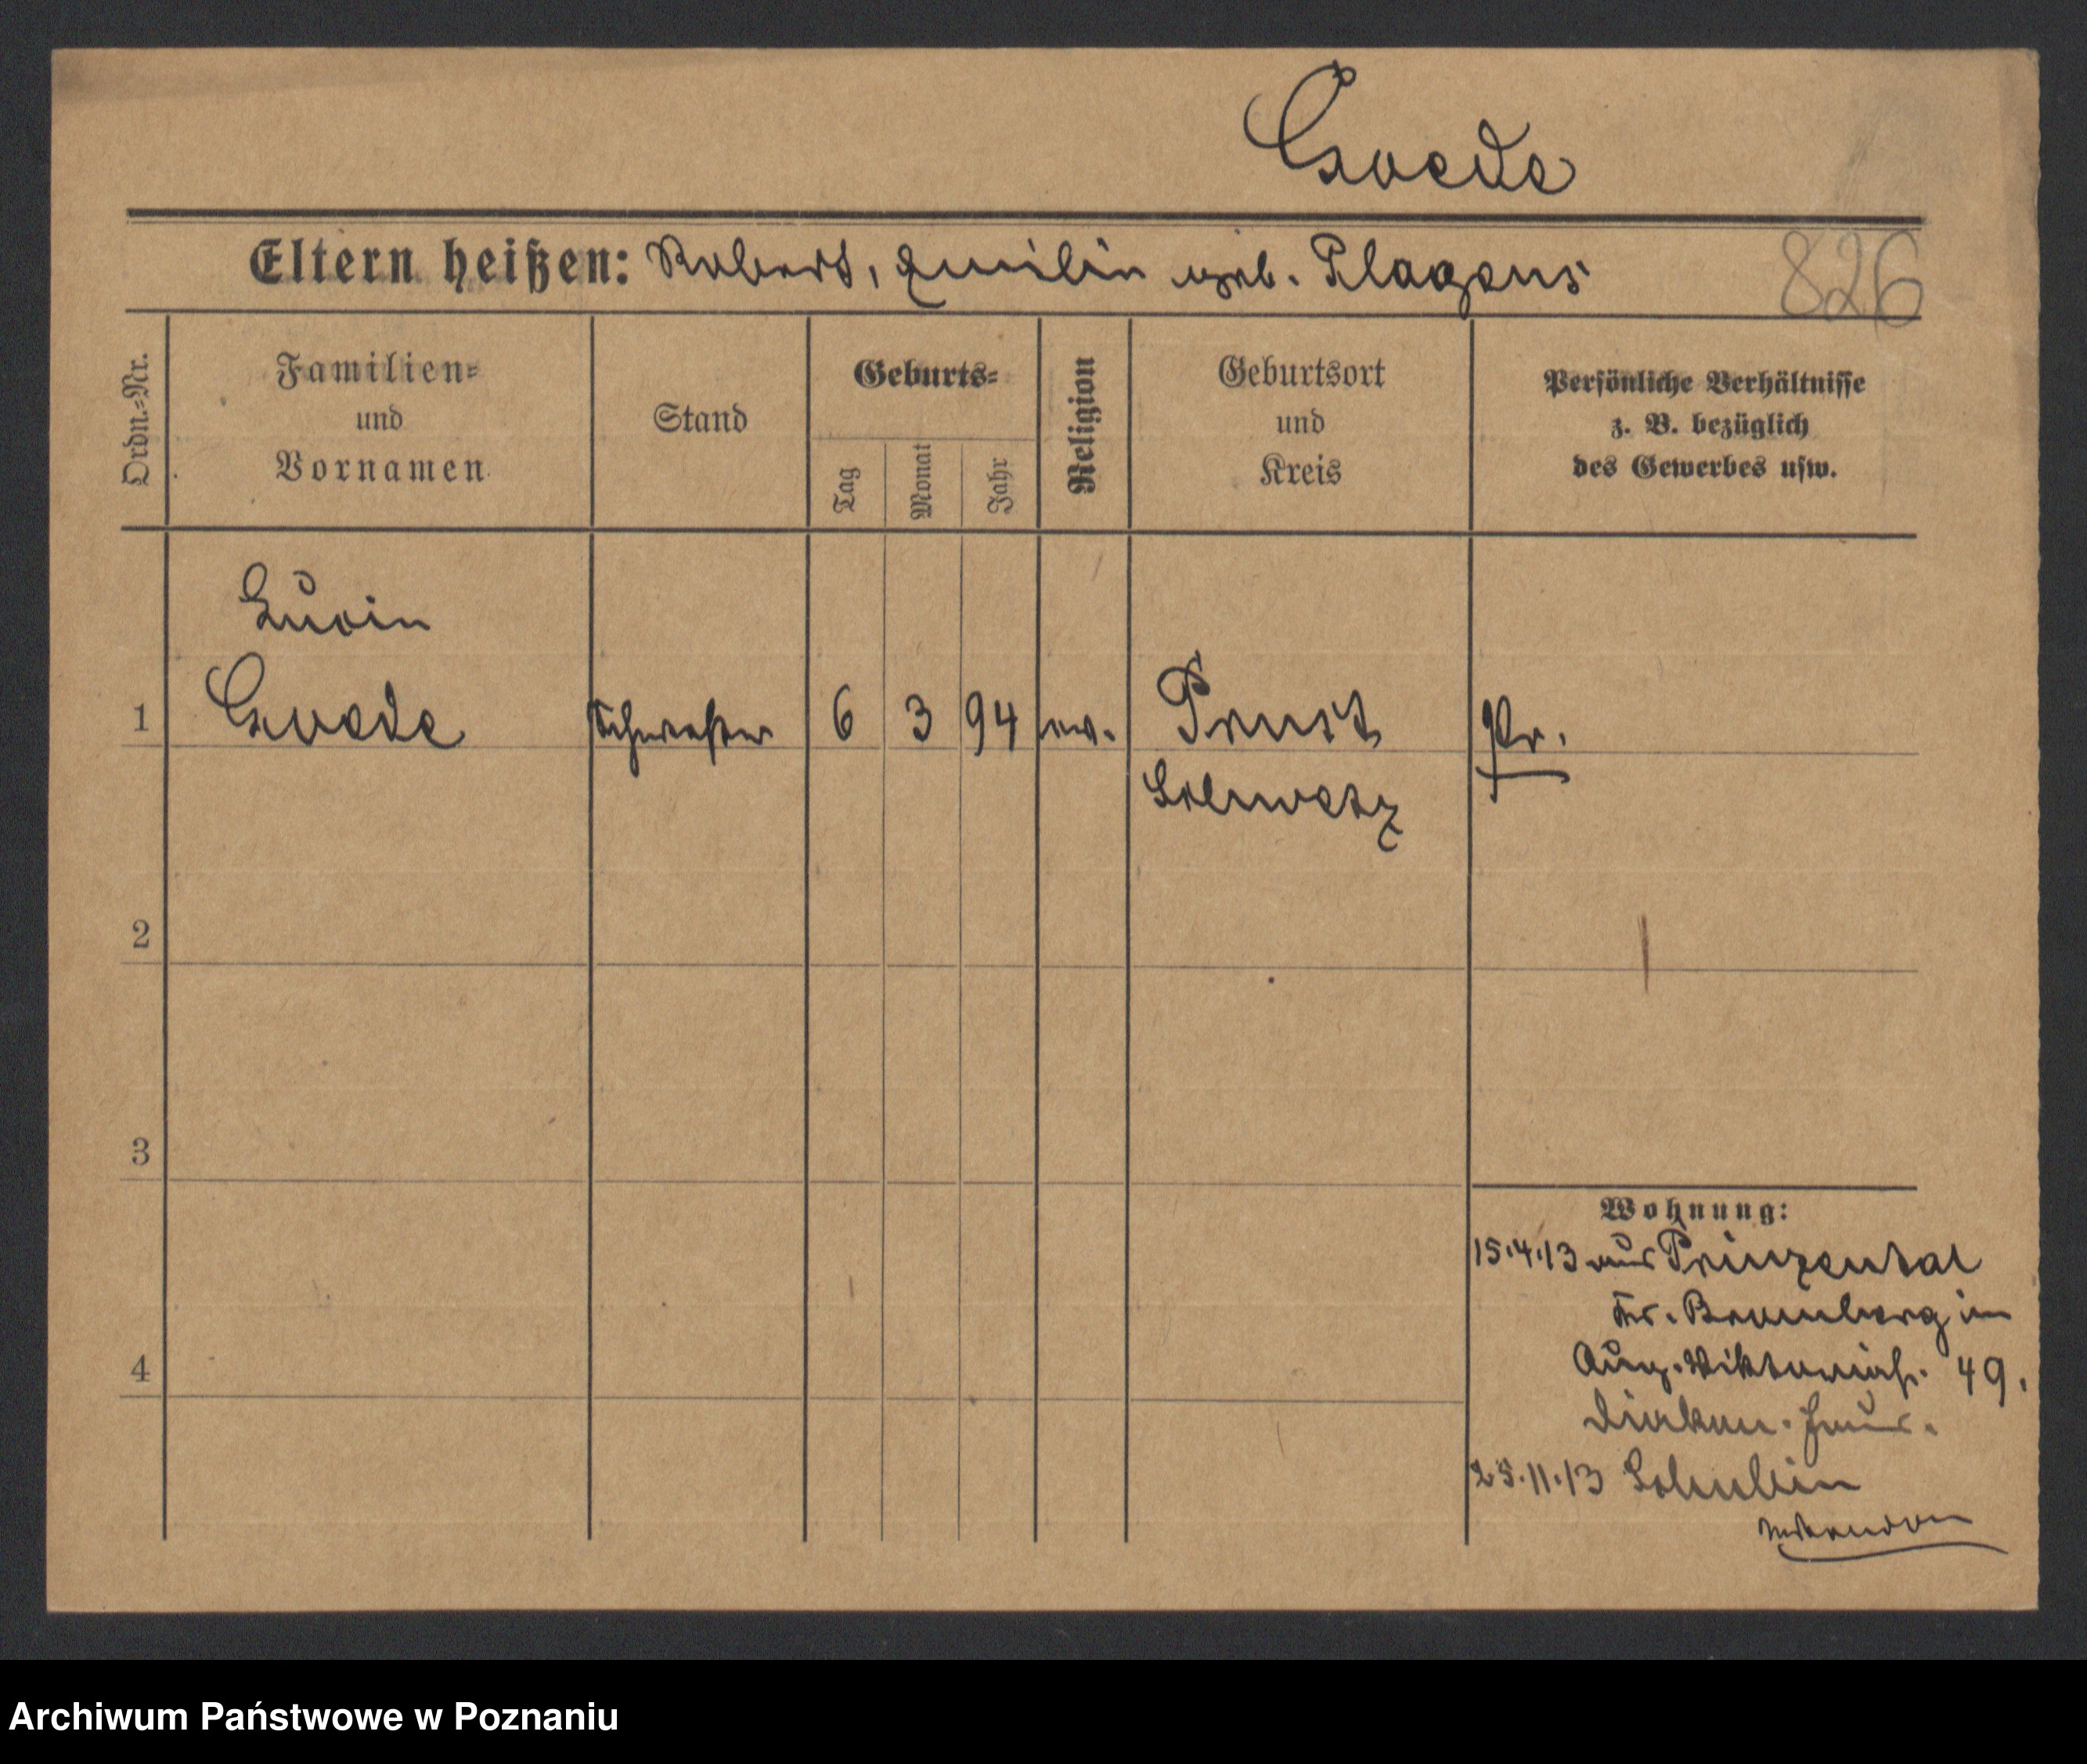 Goede
Eltern heißen: Robert, Emilie geb. Plagens
826
Ordn.-Nr.
Familien-
und
Vornamen
Stand
Geburts-
Tag
Monat
Jahr
Religion
Geburtsort
und
Kreis
Persönliche Verhältnisse
z. B. bezüglich
des Gewerbes usw.
1
Goede
Schwester
6
3
94
ev.
Prust
Schwetz
Pr.
2
3
4
Wohnung:
15.4.13 aus Prinzental
Kr. Bromberg in
Aug. Viktoriast. 49.
Diakon. Haus.
25.11.13 Schubin
Archiwum Państwowe w Poznaniu